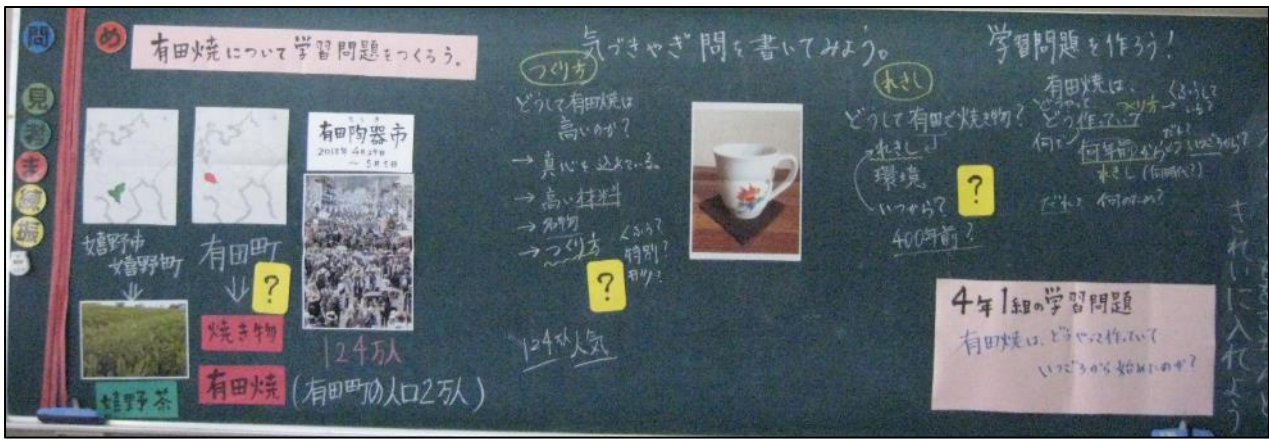 問
見
考
ま
練
振
め
有田焼について学習問題をつくろう。
嬉野市
嬉野町
嬉野茶
有田町
?
焼き物
有田焼
有田陶器市
2018年4月29日
~5月5日
124万人
(有田町の人口2万人)
気づきやぎ問を書いてみよう。
つくり方
どうして有田焼は
高いのか?
→真心を込めている。
→高い材料
→名物
→つくり方
くふう?
特別?
?
124万人気
れきし
どうして有田で焼き物?
れきし
環境
いつから?
400年前?
?
学習問題を作ろう!
有田焼は、
どうやって
つくり方
くふうして
いる?
どう作っていて
何年前から
いつごろから?
れきし
だれが 何のため?
4年1組の学習問題
有田焼は、どうやって作っていて
いつごろから始めたのか?
きれいに入れよう